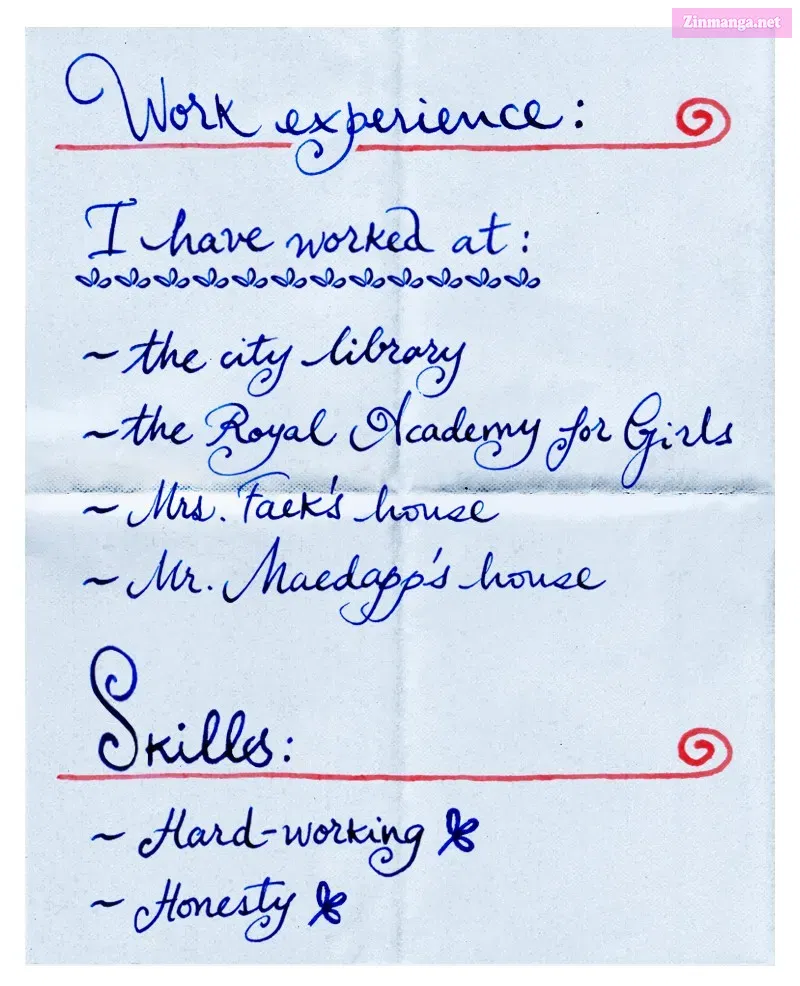 Zinmanga.net
Work experience:
I have worked at:
~ the city library
~ the Royal Academy for Girls
~ Mrs. Faek's house
~ Mr. Maedapp's house
Skills:
~ Hard-working
~ Honesty